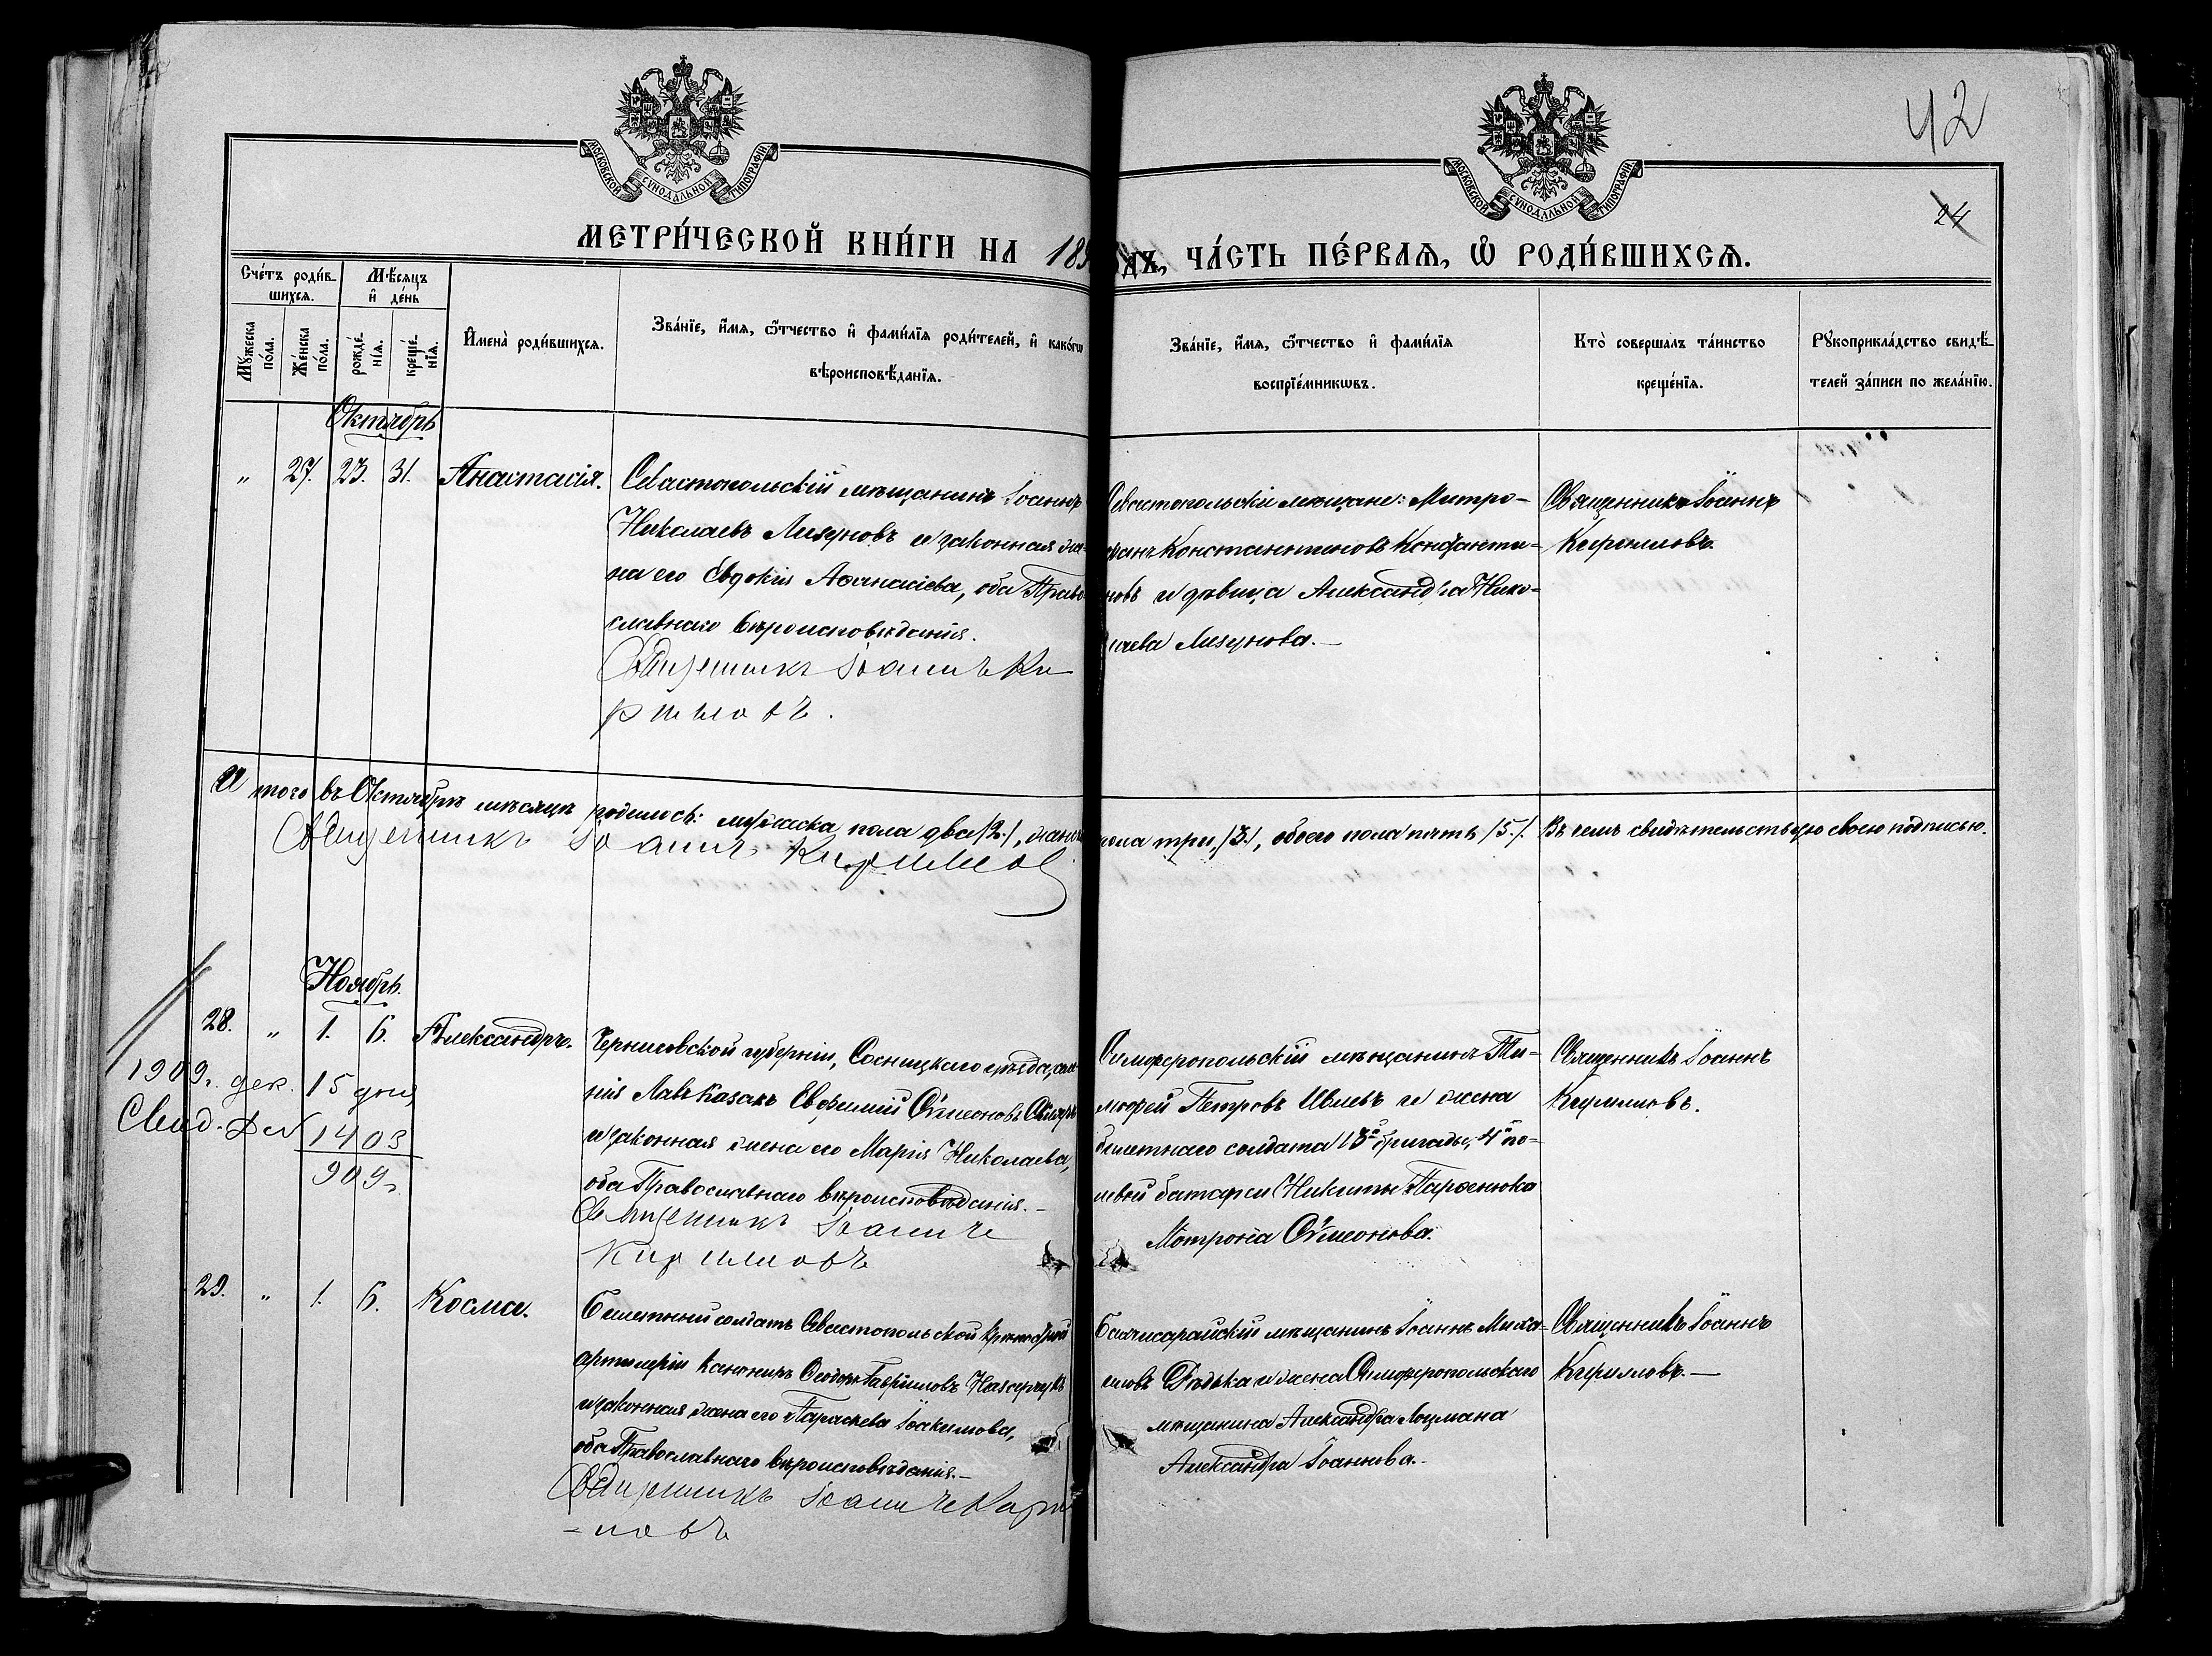 42
24
МОСКОВСКОЙ СѴНОДАЛЬНОЙ ТИПОГРАФІИ
МОСКОВСКОЙ СѴНОДАЛЬНОЙ ТИПОГРАФІИ
МЕТРИ́ЧЕСКОЙ КНИ́ГИ НА 189
ДЪ, ЧА́СТЬ ПЕ́РВАЯ, Ѿ РОДИ́ВШИХСЯ.
Сче́тъ роди́в-
шихся.
Мѣ́сяцъ
и҆ де́нь
Мꙋ́жеска
по́ла.
Же́нска
по́ла.
рожде́-
нїѧ.
креще́-
нїѧ.
И҆мена̀ роди́вшихсѧ.
Зва́нїе, и҆́мѧ, ѻ҆́тчество и҆ фами́лїѧ роди́телей, и҆ како́гѡ
вѣроисповѣ́данїѧ.
Зва́нїе, и҆́мѧ, ѻ҆́тчество и҆ фами́лїѧ
воспрїе́мникѡвъ.
Кто̀ соверша́лъ та́инство
креще́нїѧ.
Рꙋкоприкла́дство свидѣ́-
телей за́писи по жела́нїю.
Октябрь
„ 27. 23. 31. Анастасія.
Севастопольскій мѣщанинъ Іоаннъ
Николаевъ Лизуновъ и законная же-
на его Евдокія Аѳанасіева, оба Право-
славнаго вѣроисповѣданія.
Священникъ Іоаннъ Ки
риловъ.
Севастопольскіе мѣщане: Митро-
фанъ Константиновъ Константи-
новъ и дѣвица Александра Нико-
лаева Лизунова.—
Священникъ Іоаннъ
Кириловъ.
Итого въ Октябрѣ мѣсяцѣ родилось: мужеска пола два /2./, женска
пола три /3./, обоего пола пять /5./. Въ чемъ свидѣтельствую своею подписью.
Священникъ Іоаннъ Кирилов
Ноябрь.
28. „ 1. 6. Александръ.
1909г. дек. 15 дня
Свид. Д №1403
909г
Черниговской губерніи, Сосницкаго уѣзда,
Казакъ Евфимій Сѵмеоновъ
и законная жена его Марія Николаева,
оба Православнаго вѣроисповѣданія.—
Священникъ Іоаннъ
Кириловъ
Симферопольскій мѣщанинъ Ти-
мофей Петровъ Ивлевъ и жена
билетнаго солдата 13й бригады, 4й по-
левой батареи Никиты Парѳенюка
Мотрона Сѵмеонова.
Священникъ Іоаннъ
Кириловъ.
29. „ 1. 6. Косма.
Билетный солдатъ Севастопольской крѣпостной
артилеріи канониръ Ѳеодоръ Гавриловъ
и законная жена его Параскева Іоакимова,
оба Православнаго вѣроисповѣданія.—
Священникъ Іоаннъ Кири
-ловъ
Бахчисарайскій мѣщанинъ Іоаннъ Миха-
иловъ Рѣдька и жена Симферопольскаго
мѣщанина Александра Лоцмана
Александра Іоаннова.-
Священникъ Іоаннъ
Кириловъ.—